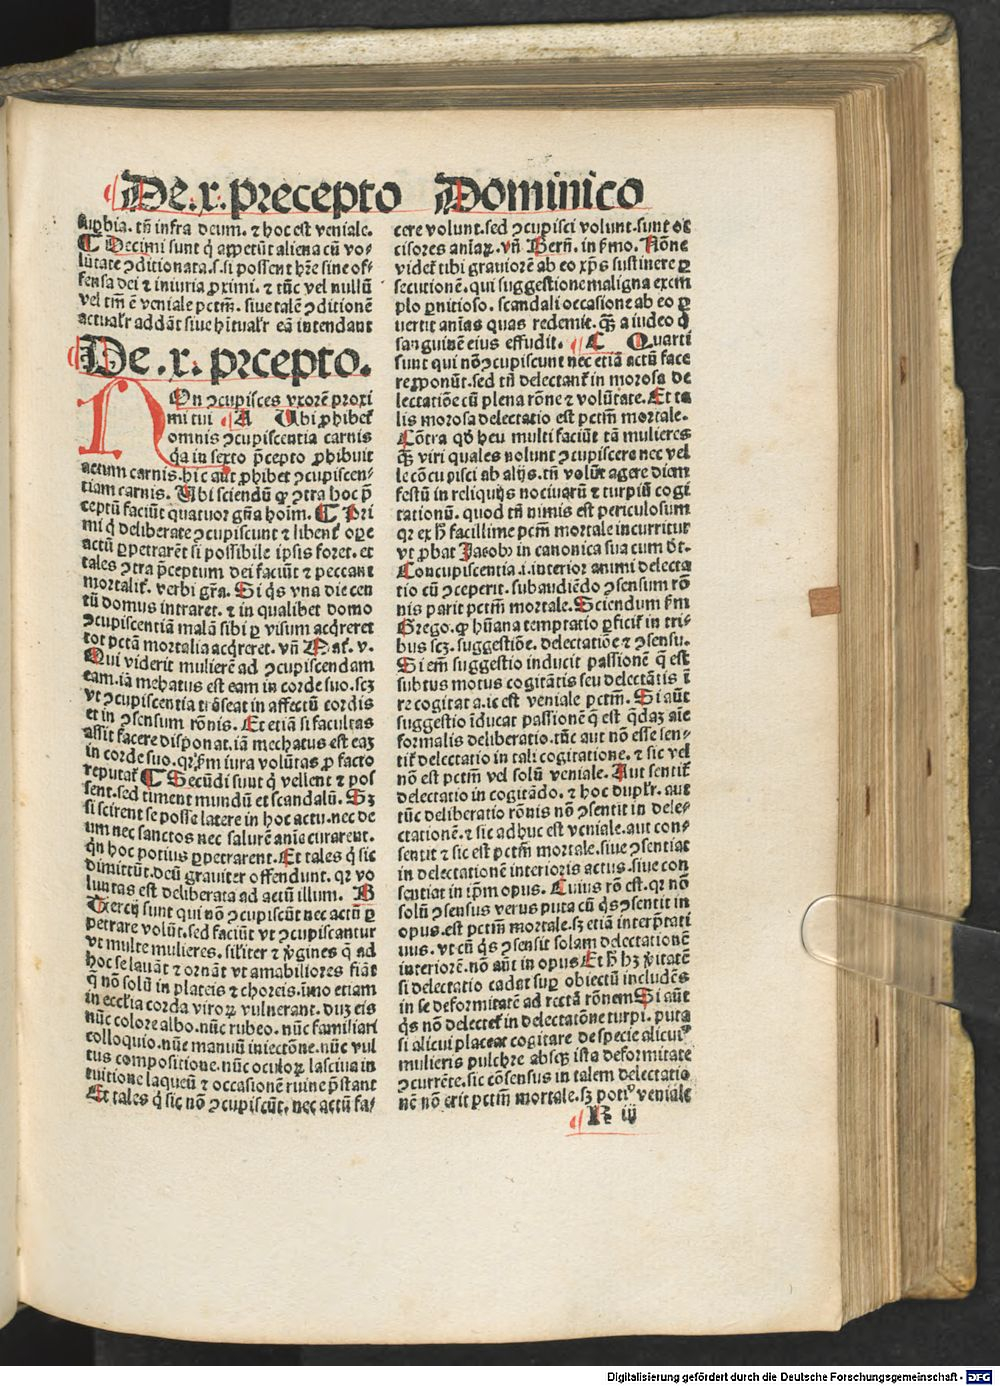 De.x.precepto Dominico
suꝑbia. tñ infra deum. ⁊ hoc est veniale.
¶ Decimi sunt q̇ appetūt aliena cū vo-
lūtate ↄditionata.s.si possent hr̄e sine of-
fensa dei ⁊ iniuria ꝓximi. ⁊ tūc vel nullū
vel tm̄ ē veniale pctm̄. siue talē ↄditionē
actualr̄ addāt siue hītualr̄ eā intendant
De.x.prcepto.
NOn ↄcupisces vxorē proxi
mi tui A Ubi ꝓhibet̄
omnis ↄcupiscentia carnis
q̄a in sexto p̄cepto ꝓhibuit
actum carnis. hic aūt ꝓhibet ↄcupiscen-
tiam carnis. Ubi sciendū ꝙ ↄtra hoc p̄
ceptū faciūt quatuor gn̄a hoīm. ¶ Pri
mi q̇ deliberate ↄcupiscunt ⁊ libent̄ oꝑe
actū ꝑpetrarēt si possibile ipsis foret. et
tales ↄtra p̄ceptum dei faciūt ⁊ peccant
mortalit̄. verbi gr̄a. Si q̇s vna die cen
tū domus intraret. ⁊ in qualibet domo
ↄcupiscentiā malā sibi ꝑ visum acq̇reret
tot pctā mortalia acq̇reret. vn̄ Mat̄. v.
Qui viderit mulierē ad ↄcupiscendam
eam. iā mehatus est eam in corde suo. scꝫ
vt ↄcupiscentia trāseat in affectū cordis
et in ↄsensum rōnis. Et etiā si facultas
assit facere disponat. iā mechatus est eaꝫ
in corde suo. qꝛ ẜm iura volūtas ꝓ facto
reputat̄ ¶ Secūdi suut q̇ vellent ⁊ pos
sent. sed timent mundū et scandalū. Sꝫ
si scirent se posse latere in hoc actu. nec de
um nec sanctos nec salutē anīe curarent.
qn̄ hoc potius ꝑpetrarent. Et tales q̇ sic
dimittūt. deū grauiter offendunt. qꝛ vo
luntas est deliberata ad actū illum. B
Tiercij sunt qui nō ↄcupiscūt nec actū ꝑ
petrare volūt. sed faciūt vt ↄcupiscantur
vt multe mulieres. sil̄iter ⁊ v̇gines q̄ ad
hoc se lauāt ⁊ ornāt vt amabiliores fiāt
q̄ nō solū in plateis ⁊ choreis. īmo etiam
in eccl̄ia corda viroꝝ vulnerant. Duꝫ eis
nūc colore albo. nūc rubeo. nūc familiari
colloquio. nūc manuū iniectōne. nūc vul
tus compositione. nūc oculoꝝ lasciua in
tuitione laqueū ⁊ occasionē ruine p̄stant
Et tales q̇ sic nō ↄcupiscūt. nec actū fa-
cere volunt. sed ↄcupisci volunt. sunt oc
cisores anīaꝝ. vn̄ Bern̄. in ẜmo. Nōne
videt̄ tibi grauiorē ab eo xp̄s sustinere ꝑ
secutionē. qui suggestione maligna exem
plo ꝑnitioso. scandali occasione ab eo ꝑ
uertit anīas quas redemit. q̄ꝫ a iudeo q̇
sanguinē eius effudit. C Quarti
sunt qui nō ↄcupiscunt nec etiā actū face
re ꝓponūt. sed tn̄ delectant̄ in morosa de
lectatiōe cū plena rōne ⁊ volūtate. Et ta
lis morosa delectatio est pctm̄ mortale.
Cōtra qd̄ heu multi faciūt tā mulieres
q̄ꝫ viri quales nolunt ↄcupiscere nec vel
le cōcupisci ab alijs. tn̄ volūt agere diem
festū in reliquijs nociuarū ⁊ turpiū cogi
tationū. quod tn̄ nimis est periculosum
qꝛ ex h̄ facillime pctm̄ mortale incurritur
vt ꝓbat Jacobꝰ in canonica sua cum dt̄.
Concupiscentia .i. interior animi delecta
tio cū ↄceperit. subaudiēdo ↄsensum rō
nis parit pctm̄ mortale. Sciendum ẜm
Grego. ꝙ hūana temptatio ꝑficit̄ in tri-
bus scꝫ. suggestiōe. delectatiōe ⁊ ↄsensu.
Si em̄ suggestio inducit passionē q̄ est
subtus motus cogitātis seu delectātis ī
re cogitata. ic est veniale pctm̄. Si aūt
suggestio īducat passionē q̄ est q̄daꝫ aīe
formalis deliberatio. tūc aut nō esse sen-
tit̄ delectatio in tali cogitatione. ⁊ sic vel
nō est pctm̄ vel solū veniale. Aut sentit̄
delectatio in cogitādo. ⁊ hoc duplr̄. aut
tūc deliberatio rōnis nō ↄsentit in dele-
ctationē. ⁊ sic adhuc est veniale. aut con-
sentit ⁊ sic est pctm̄ mortale. siue ↄsentiat
in delectationē interioris actus. siue con
sentiat in ip̄m opus. Cuius rō est. qꝛ nō
solū ↄsensus verus puta cū q̇s ↄsentit in
opus. est pctm̄ mortale. sꝫ etiā interp̄tati
uus. vt cū q̇s ↄsensit solam delectationē
interiorē. nō aūt in opus Et h̄ hꝫ v̇itatē
si delectatio cadat suꝑ obiectū includēs
in se deformitatē ad rectā rōnem Si aūt
q̇s nō delectet̄ in delectatōne turpi. puta
si alicui placeat cogitare de specie alicuiꝰ
mulieris pulchre absqꝫ ista deformitate
ↄcurrēte. sic cōsensus in talem delectatio
nē nō erit pctm̄ mortale. sꝫ potiꝰ veniale
R iij
Digitalisierung gefördert durch die Deutsche Forschungsgemeinschaft - DFG